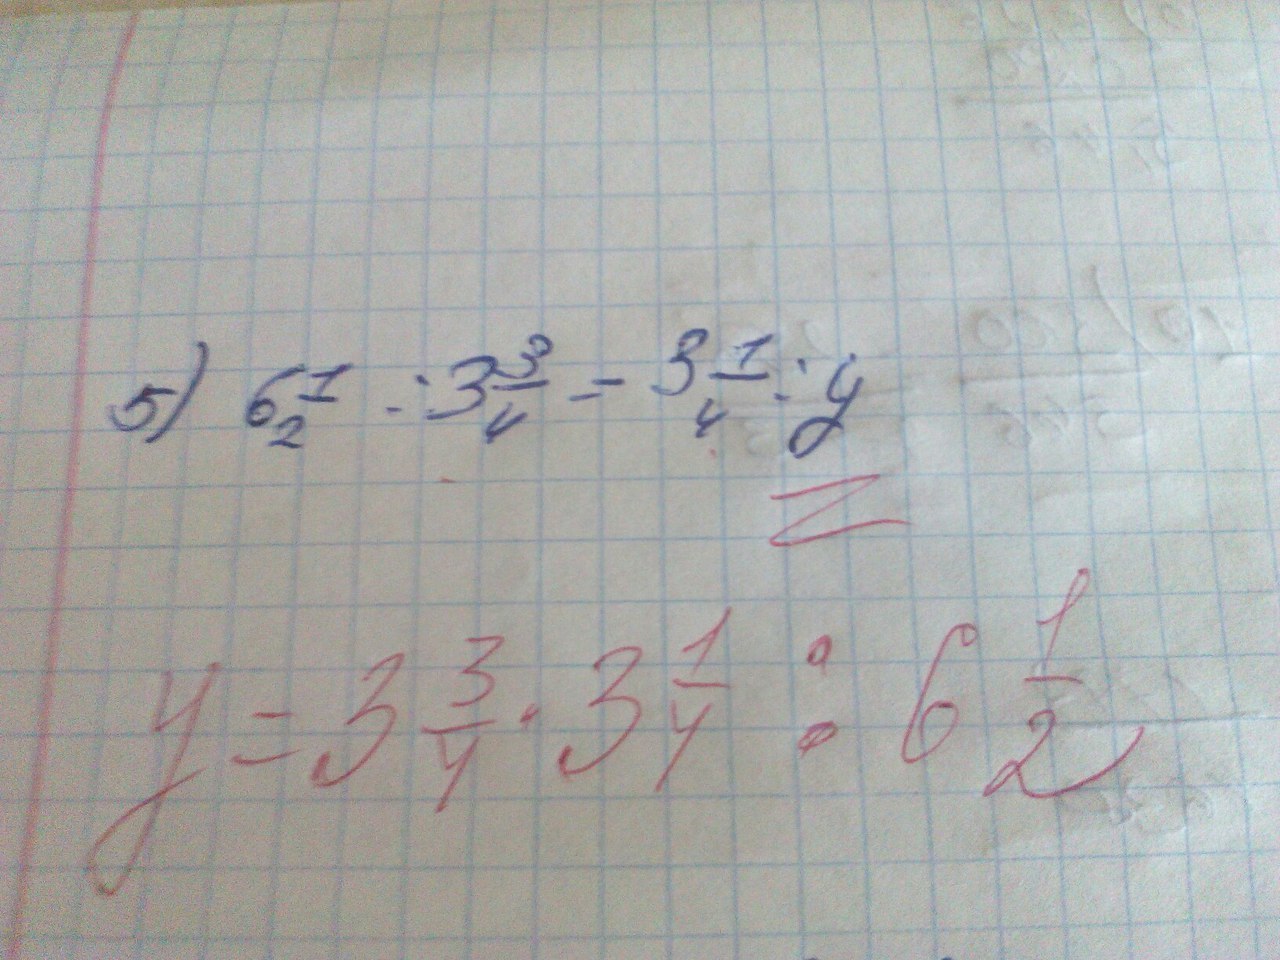 5) 6 1/2 : 3 3/4 = 3 1/4 : y
y = 3 3/4 · 3 1/4 : 6 1/2